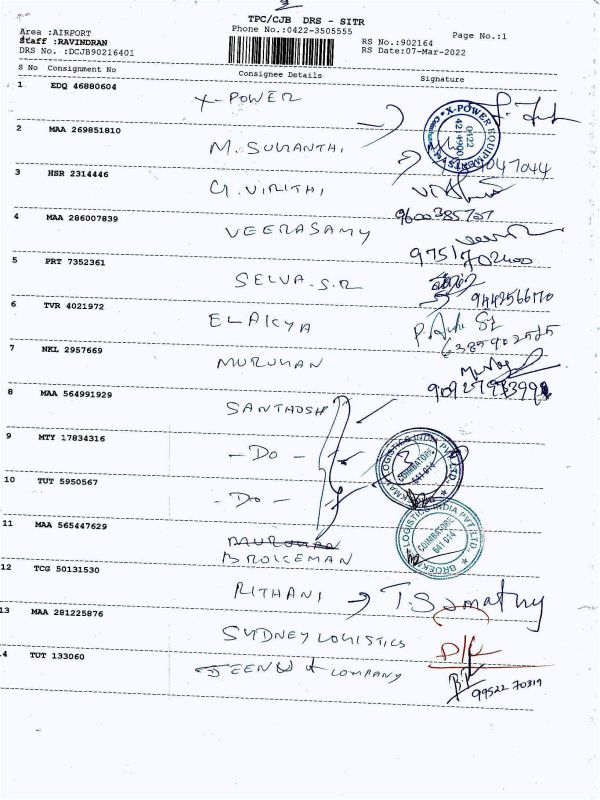 TPC/CJB DRS - SITR
Area :AIRPORT
Phone No.:0422-3505555
Page No.:1
Staff :RAVINDRAN
RS No.:902164
DRS No. :DCJB90216401
RS Date:07-Mar-2022
S No Consignment No Consignee Details Signature
1 EDQ 46880604 X-POWER
X-POWER EQUIPMENTS
0422
2 MAA 269851810 M. SUMANTHI
3 HSR 2314446 G. VIRITHI
9600385707
4 MAA 286007839 VEERASAMY
9751702400
5 PRT 7352361 SELVA.S.R
9442566170
6 TVR 4021972 ELAKYA
7 NKL 2957669 MURUKAN
8 MAA 564991929 SANTHOSH
9 MTY 17834316 - DO -
LOGISTICS INDIA PVT. LTD.
COIMBATORE
641 014
10 TUT 5950567 - DO -
11 MAA 565447629 BROKEMAN
LOGISTICS INDIA PVT. LTD.
COIMBATORE
641 014
12 TCG 50131530 RITHANI
13 MAA 281225876 SYDNEY LOGISTICS
4 TUT 133060 & COMPANY
99522 70319